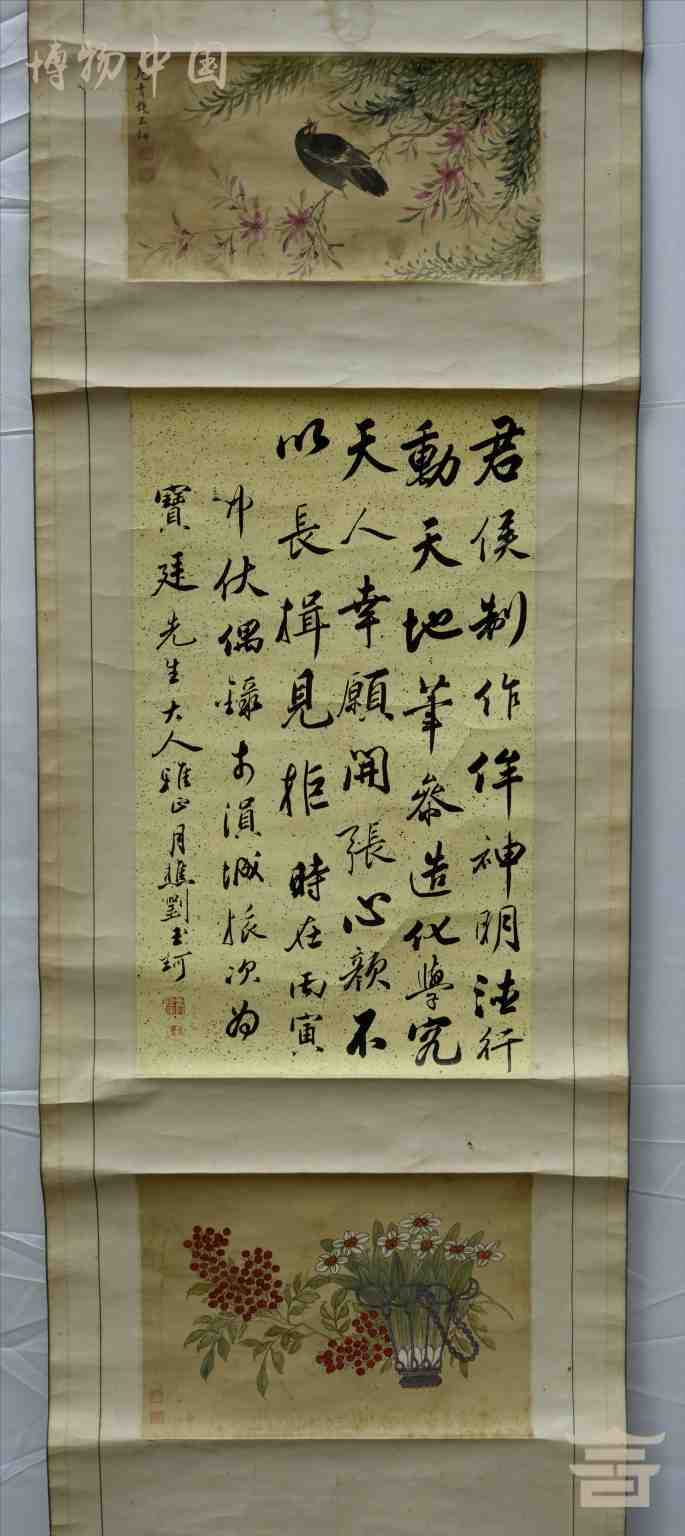 博物中国
君侯制作侔神明德行
動天地筆參造化學究
天人幸願開張心顏不
以長揖見拒時在丙寅
中伏偶錄於湞城旅次為
寶廷先生大人雅正月樵劉玉珂